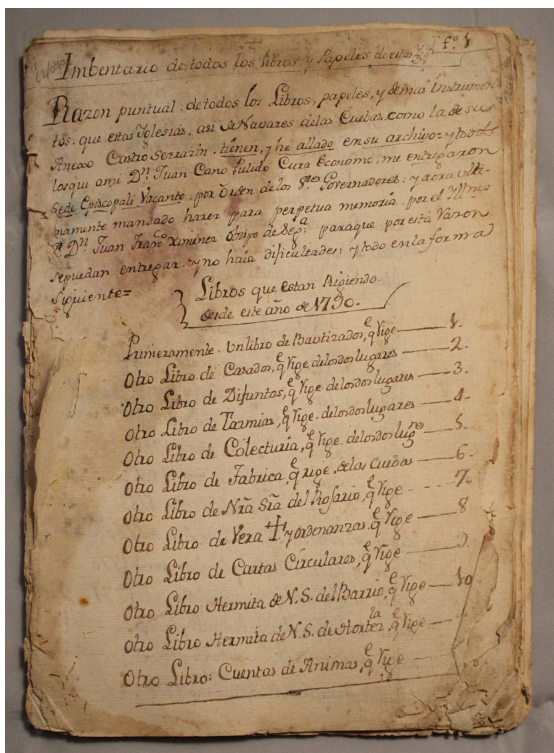 Imbentario de todos los libros, y Papeles de estas Ygs fº. 1
Razon puntual de todos los Libros, papeles, y demas Instrumen
tos, que estas Iglesias, asi de Navares delas Cuebas, como la de su
Anexo Castro Serrazin, tienen, y he allado en su archivo: y todos
los que a mi Dn. Juan Cano Pulido Cura Economo, me entregaron
Sede Episcopali Vacante, por orden de los Ses. Governadores: y aora ulti
mamente mandado hazer para perpetua memoria por el Yllmo
Sr. Dn. Juan Franco. Ximinez Obispo de Sega. para que por esta Razon
se puedan entregar, y no haia dificultades; y todo en la forma
siguiente=
Libros que estan Rigiendo
desde este año de 1790.
Primeramente. Un libro de Bautizados, q̃ Rige — 1.
Otro Libro de Casados, q̃ Rige de los dos lugares — 2.
Otro Libro de Difuntos, q̃ Rige de los dos lugares — 3.
Otro Libro de Tazmias, q̃ Rige de los dos lugares — 4.
Otro Libro de Colecturia, q̃ Rige de los dos lugres — 5.
Otro Libro de Fabrica, q̃ rige, de las Cuebas — 6.
Otro Libro de Nrã Srã del Rosario, q̃ Rige — 7.
Otro Libro de Vera ✝ y ordenanzas, q̃ Rige — 8
Otro Libro de Cartas Circulares, q̃ Rige — 9.
Otro Libro Hermita de N. S. del Barrio, q̃ Rige — 10
Otro Libro Hermita de N. S. de la q̃ Rige —
Otro Libro: Cuentas de Animas, q̃ Rige —